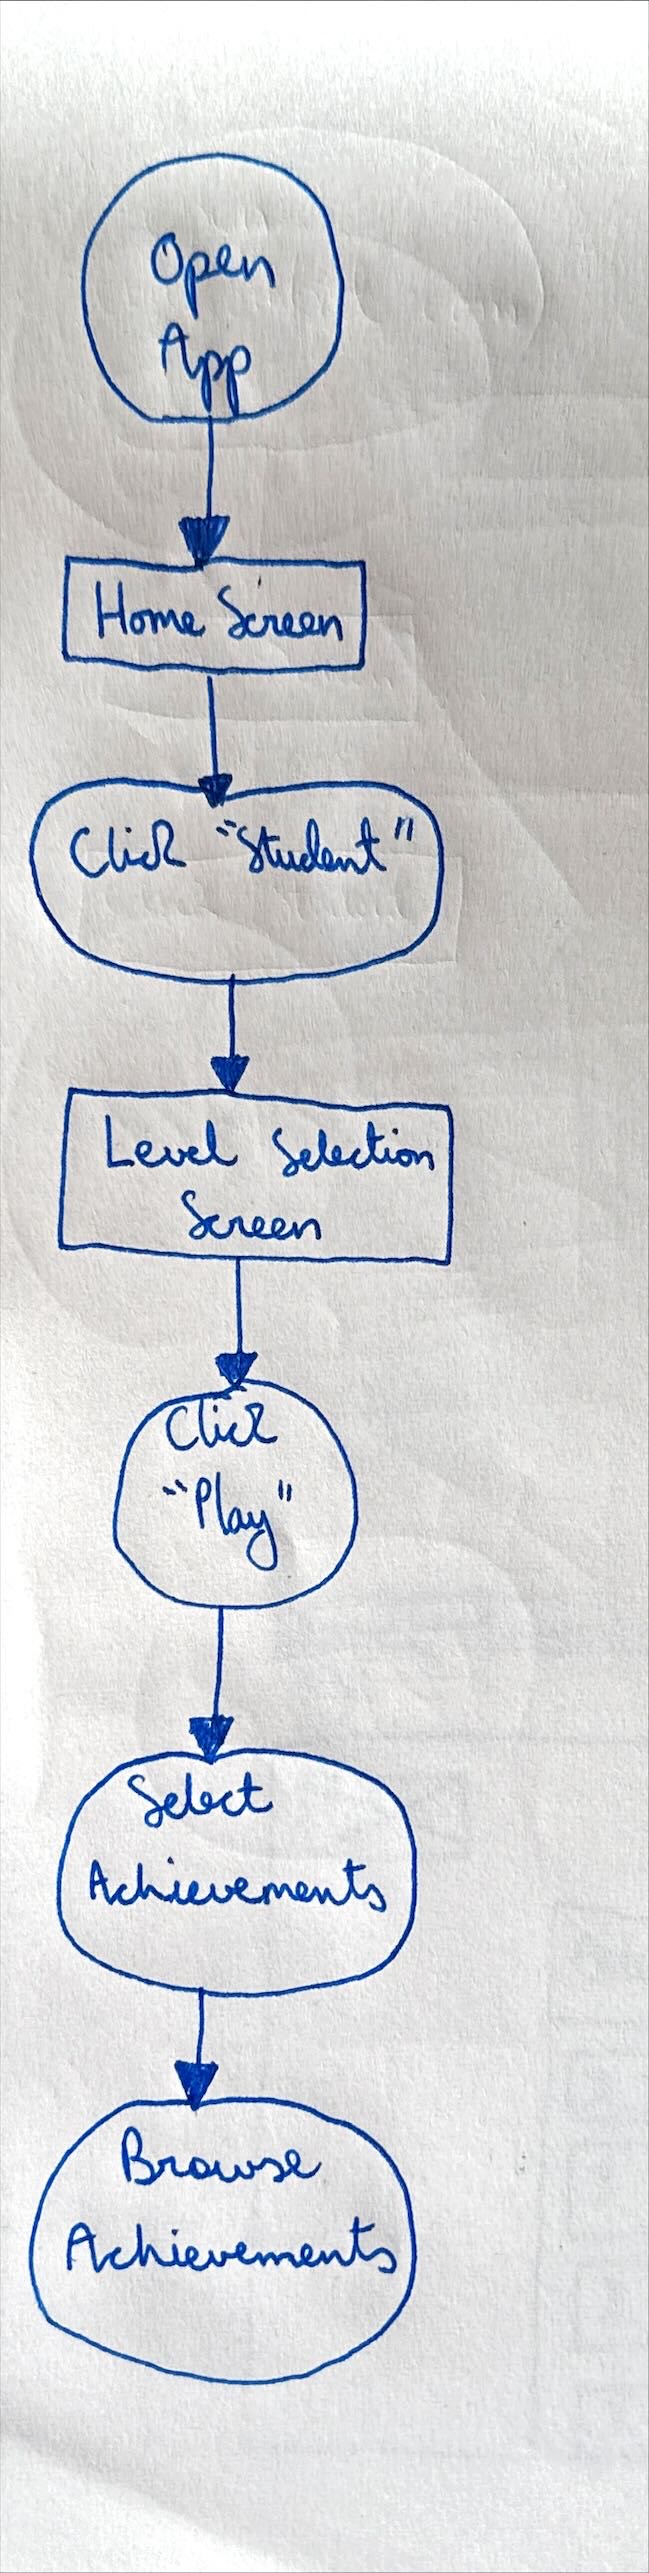 Open
App
Home Screen
Click "Student"
Level Selection
Screen
Click
"Play"
Select
Achievements
Browse
Achievements